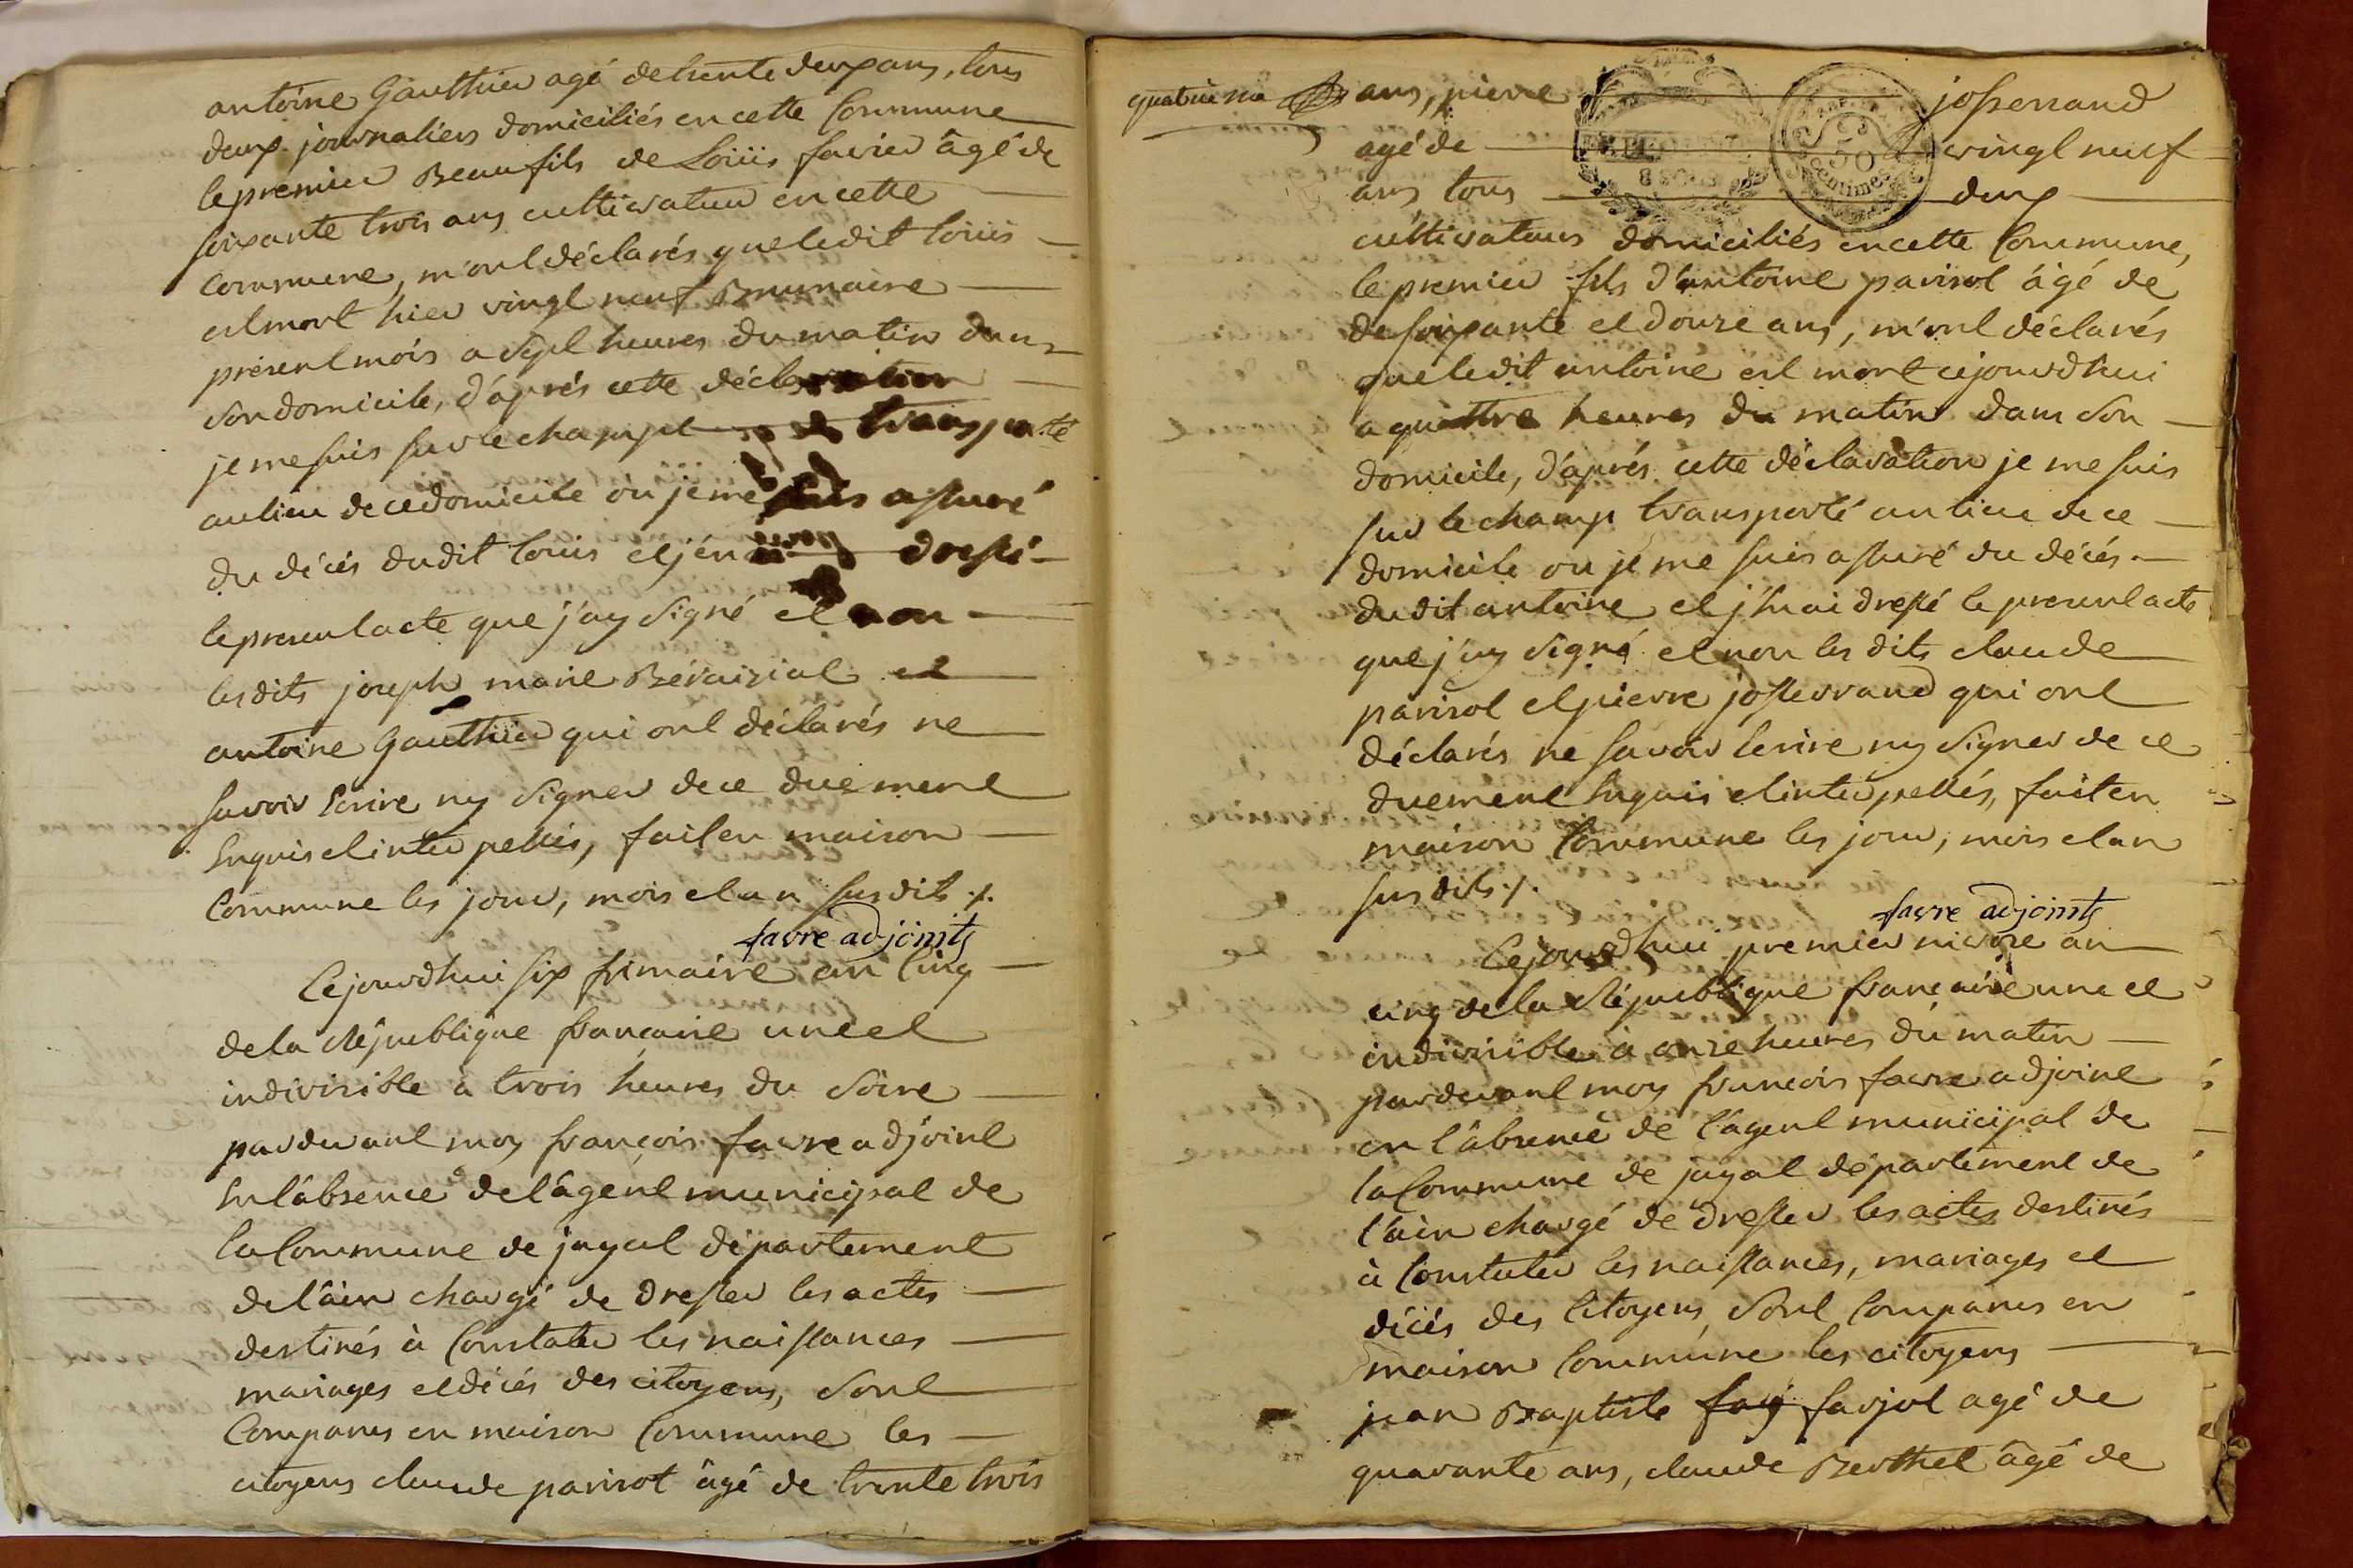 antoine Gauthier agé de trente deux ans, tous
deux journaliers domiciliés en cette Commune
le premier Beaufils de Loüis favier âgé de
soixante trois ans cultivateur en cette
Commune, m'ont déclarés que ledit loüis
est mort hier vingt neuf Brumaire
présent mois a sept heures du matin dans
son domicile, d'aprés cette déclaration
je me suis sur le champt transporté
au lieu de ce domicile où je me suis assuré
du décés dudit loüis et j'en dressé
le present acte que j'ay signé et non
les dits joseph marie Béraizial et
antoine Gauthier qui ont déclarés ne
savoir Ecrire ny signer de ce duement
Enquis et interpellés, fait en maison
Commune les jour, mois et an susdits ./.
favre adjoints
Cejourdhui six frimaire an Cinq
de la République francaise une et
indivisible à trois heures du soire
pardevant moy françois favre adjoint
En l'absence de l'âgent municipal de
la Commune de jayat département
de l'âin chargé de dresser les actes
destinés à Constater les naissances
mariages et décés des citoyens, sont
Comparus en maison Commune les
citoyens claude parisot âgé de trente trois
quatrieme
ans, pierre josserrand
agé de vingt neuf
ans tous deux
50 Centimes
cultivateurs domiciliés en cette Commune,
le premier fils d'antoine parisot âgé de
de soixante et douze ans, m'ont déclarés
que ledit antoine est mort cejourdhui
a quattre heures du matin dans son
domicile, d'aprés cette déclaration je me suis
sur le champ transporté au lieu de ce
domicile ou je me suis assuré du décés
dudit antoine et j'enai dressé le present acte
que j'ay signé et non les dits claude
parisot et pierre josserrand qui ont
déclarés ne savoir Ecrire ny signer de ce
duement Enquis et interpellés, fait en
maison Commune les jour, mois et an
susdits ./.
favre adjoints
Cejourdhui premier nivose an
cinq de la République francaise une et
indivisible à onze heures du matin
pardevant moy francois favre adjoint
en l'âbsence de l'agent municipal de
la Commune de jayat département de
l'ain chargé de dresser les actes destinés
à Constater les naissances, mariages et
décés des Citoyens sont Comparus en
maison Commune les citoyens
jean Baptiste favjot agé de
quarante ans, claude Berthet âgé de